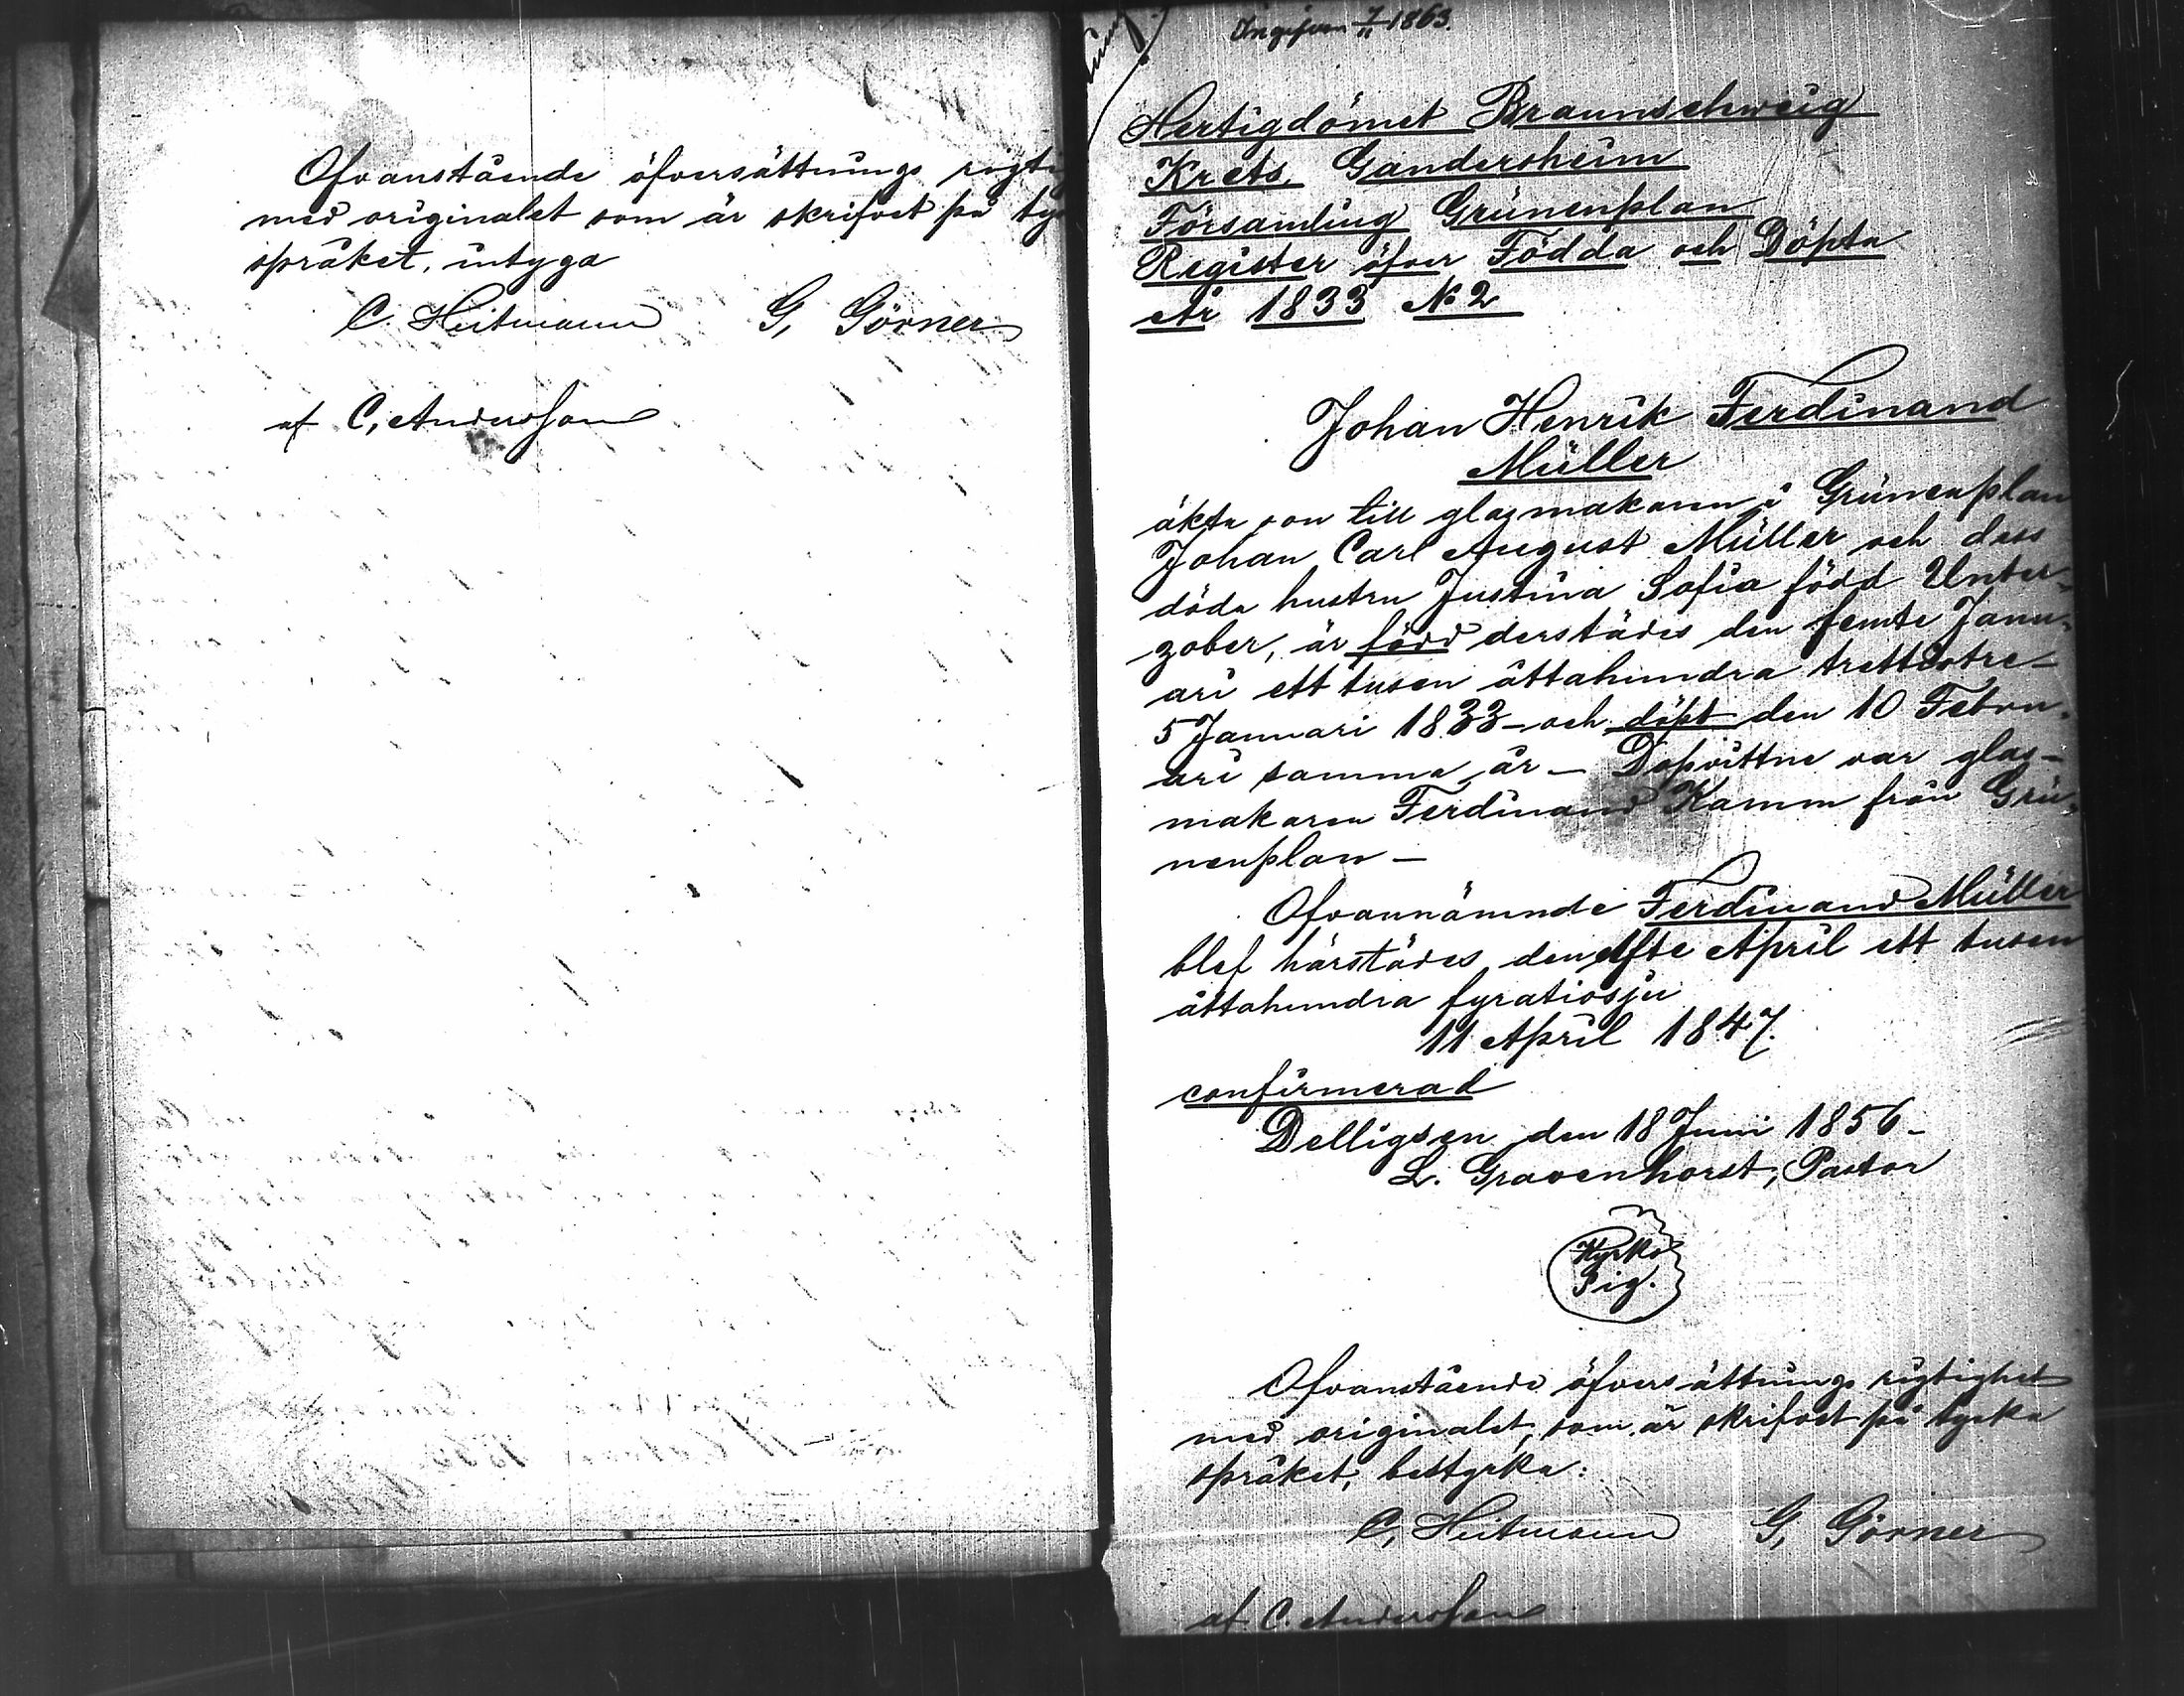 Ofvanstående öfversättnings rigti
med originalet som är skrifvet på ty
språket, intyga
C. Heitmann G, Görner
af C, Andersson
Ingifven 7/11 1863.
Hertigdömet Braunschweig
Krets. Gandersheim
Församling Grünenplan
Register öfver Födda och Döpta
År 1833 No 2
Johan Henrik Ferdinand
Müller
äkta son till glasmakaren i Grünenplan
Johan Carl August Müller och dess
döda hustru Justina Sofia född Unter-
zober, är född derstädes den femte Janu-
ari ett tusen åttahundra trettiotre-
5 Januari 1833 - och döpt den 10 Febru-
ari samma år - Dopvittne var glas-
makaren Ferdinand Kamm från Grü-
nenplan -
Ofvannämnde Ferdinand Müller
blef härstädes den elfte April ett tusen
åttahundra fyratiosju
11 April 1847.
confirmerad
Delligsen den 18 Juni 1856 -
L. Gravenhorst, Pastor
Kyrko
Sig.
Ofvanstående öfversättnings rigtighet
med originalet, som är skrifvet på tyska
språket, bestyrka:
C, Heitmann G, Görner
af C. Andersson